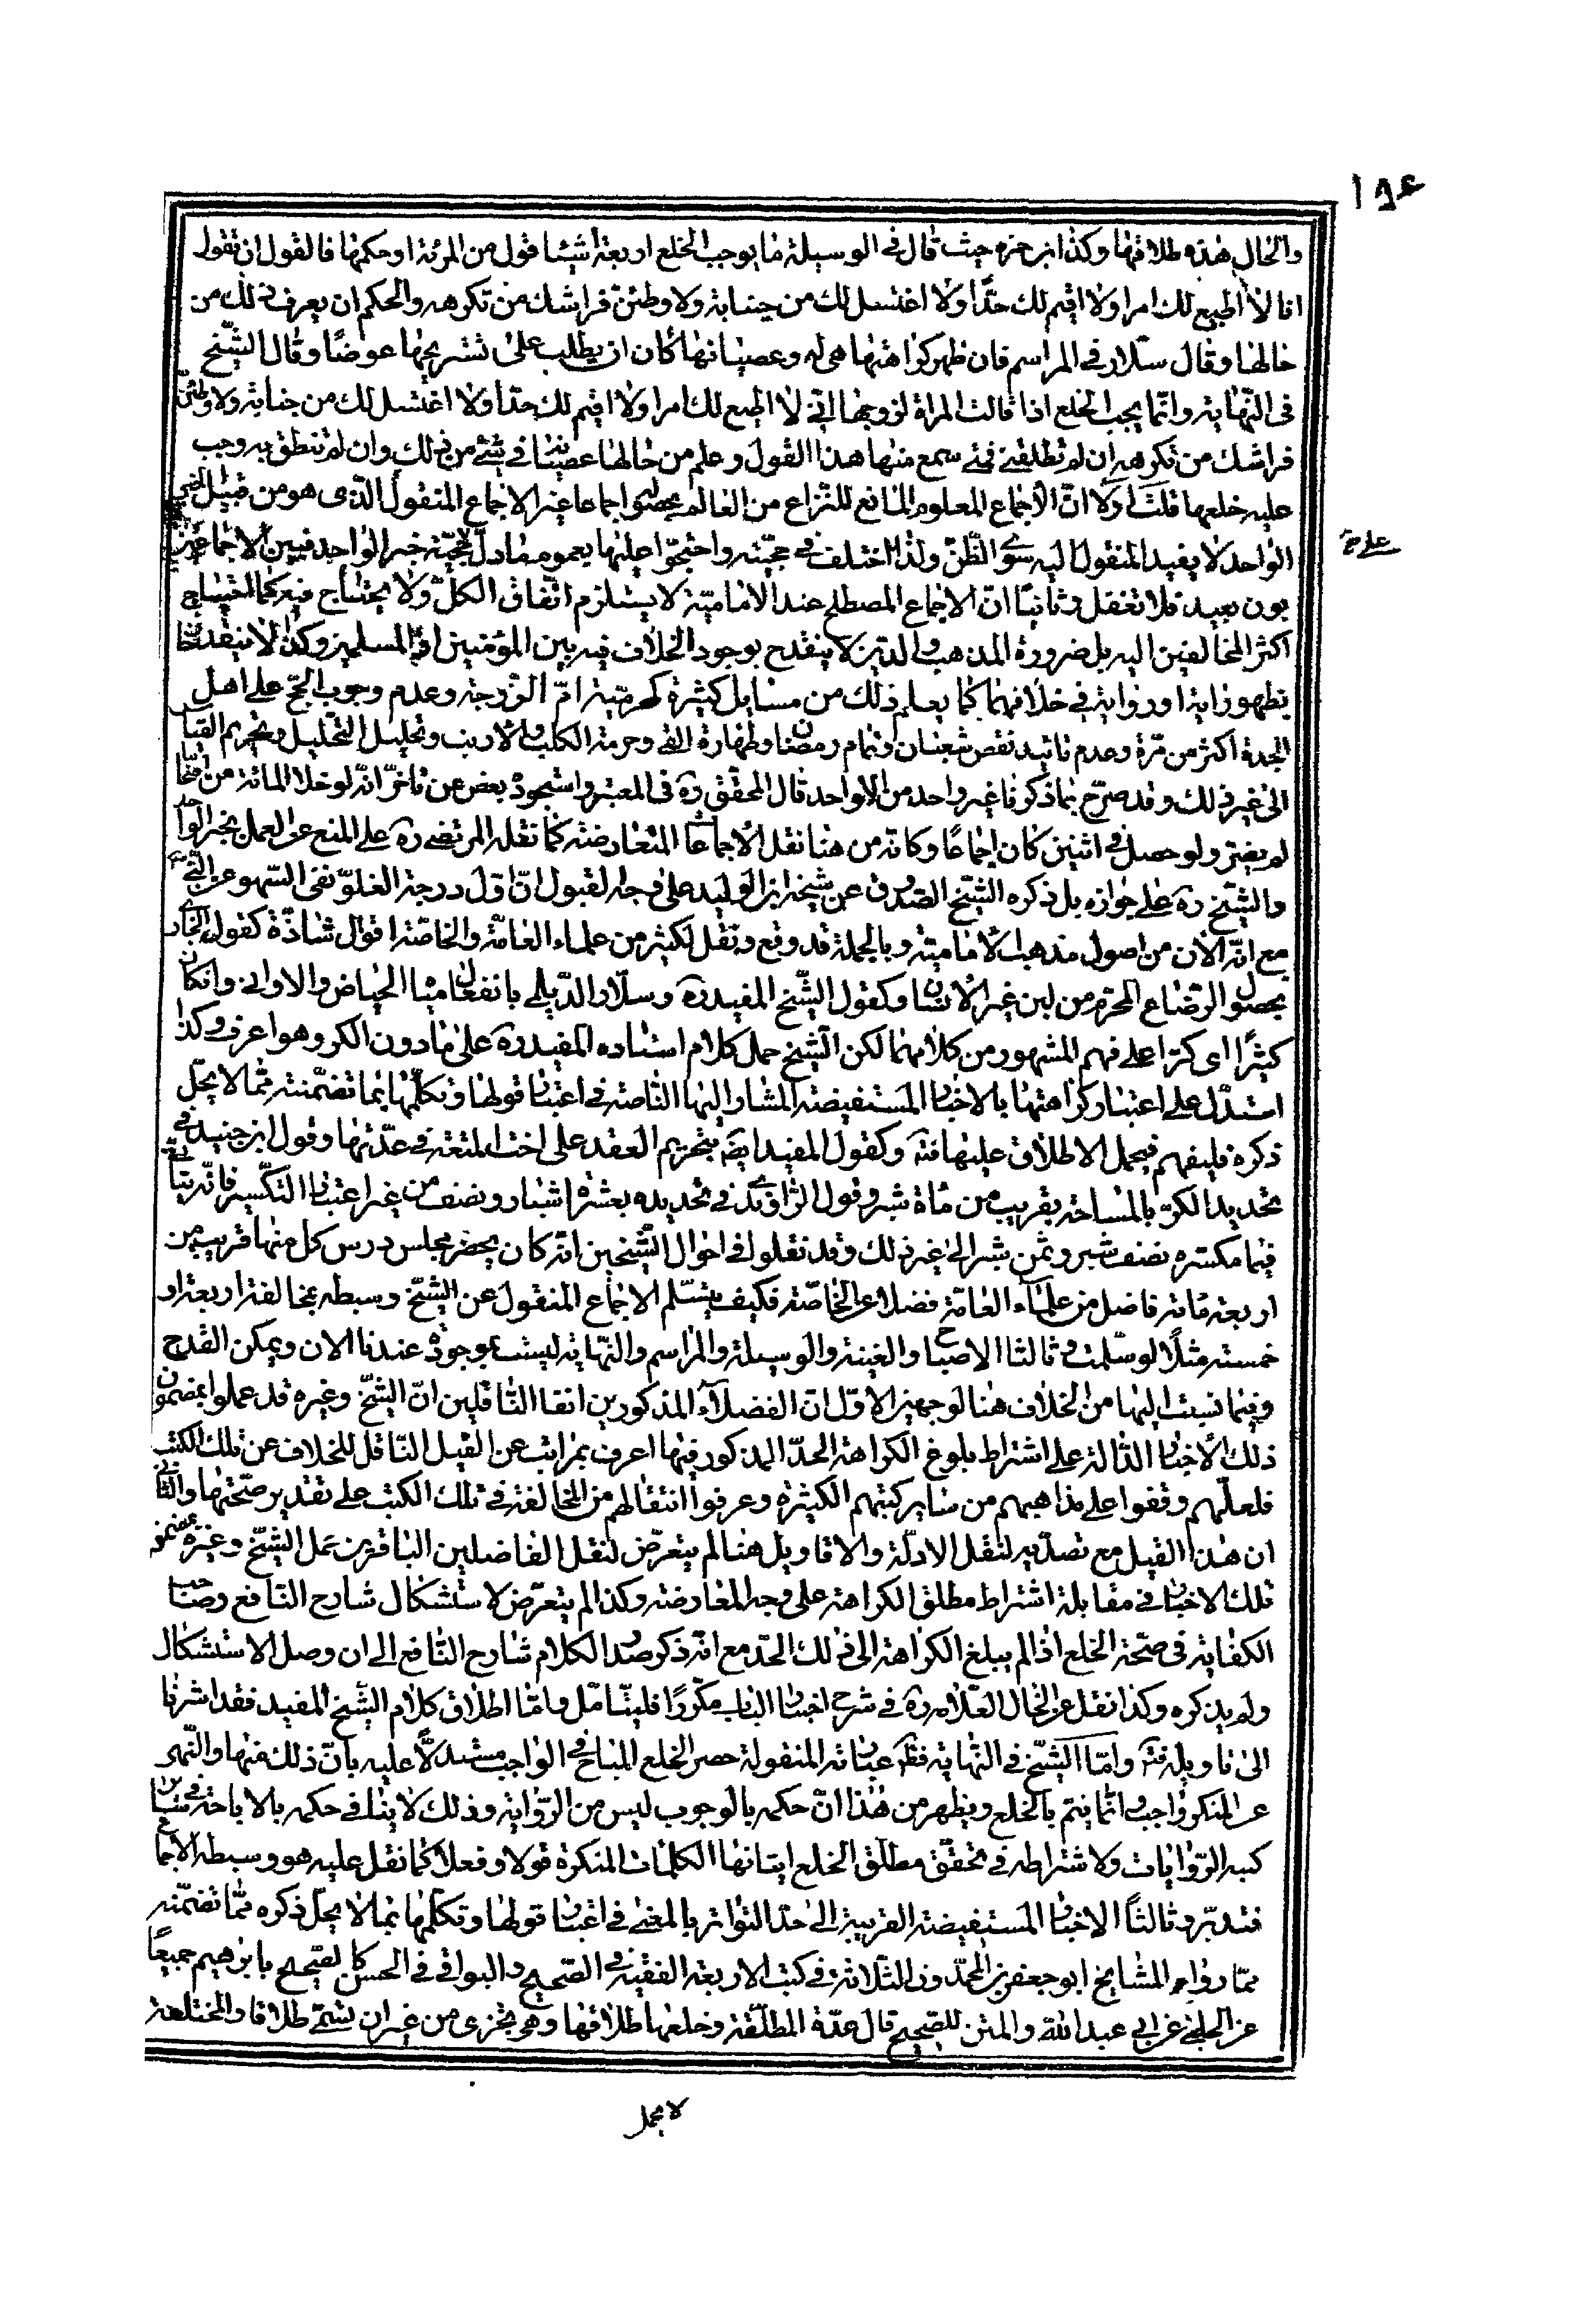 والحال هذه طلاقها وكذا ابن حمزه حيث قال في الوسيلة ما يوجب الخلع اربعة أشيئا قول من المرئة او حكمها فالقول ان تقول
انا لا اطيع لك امرا ولا اقيم لك حدّا ولا اغتسل لك من جنابة ولاوطئنّ فراشك من تكرهه والحكم ان يعرف ذلك من
حالها وقال سلّار في المراسم فان ظهر كراهتها هى له وعصيانها كان ان يطلب على تسريحها عوضًا وقال الشّيخ
فى النّهاية وانّما يجب الخلع اذا قالت المراة لزوجها انّي لا اطيع لك امرا ولا اقيم لك حدّا ولا اغتسل لك من جنابة ولاوطئنّ
فراشك من تكرهه ان لم تطلقني فمتى سمع منها هذا القول وعلم من حالها عصيانه في شئ من ذلك وان لم تنطق به وجب
عليه خلعها قلت اوّلا انّ الاجماع المعلوم المانع للنّزاع من العالم بحصوله اجماعا غير الاجماع المنقول الّذى هو من قبيل الخبر
الواحد لا يفيد المنقول اليه سوى الظّنّ ولذا اختلف في حجيّته واحتجّوا عليها بعموم مفاد دلّ لحجيّة خبر الواحد فبين الاجماعين
بون بعيد فلا تغفل وثانيًا انّ الاجماع المصطلح عند الاماميّة لا يستلزم اتّفاق الكلّ ولا يحتاج فيه كما احتياج
اكثر المخالفين اليه بل ضرورة المذهب والدين لا ينقدح بوجود الخلاف فيه بين المؤمنين او المسلمين وكذا لا ينقدحا
بظهور اية او رواية في خلافهما كما يعلم ذلك من مسايل كثيرة كحرميّة امّ الزّوجة وعدم وجوب الحجّ على اهل
الجدة اكثر من مرّة وعدم تائيد نقص شعبان وتمام رمضان وطهارة القئ وحرمة الكلب والارنب وتحليل التّحليل وتحريم القياس
الى غير ذلك وقد صرّح بما ذكرنا غير واحد من الاواحد قال المحقّق ره في المعتبر واستجوده بعض من تاخّر انّه لو خلا المائة من
لم يضر ولو حصل في اثنين كان اجماعًا وكانه من هنا نقل الاجماعا المتعارضة كما نقله المرتضى ره على المنع عن العمل بخبر الواحد
والشّيخ ره على جوازه بل ذكره الشّيخ الصّدوق عن شيخه ابن الوليد على وجه لقبول انّ اوّل درجة الغلوّ نفى السّهو عن النّبي
مع انّه الان من اصول مذهب الاماميّة وبالجملة قد وقع ونقل لكثير من علماء العامّة والخاصّة اقوال شاذّة كقول
بحصول الرّضاع المحرّم من لبن غير الانسان وكقول الشّيخ المفيد ره وسلّار الدّيلمي بانفعال مياه الحياض والاواني وان كان
كثيرًا اى كرّا على فهم المشهور من كلامهما لكن الشّيخ حمل كلام استاده المفيد ره على مادون الكر وهو اعرف وكذا
استدلّ على اعتبار كراهتها بالاخبار المستفيضة المشار اليها النّاصة في اعتبار قولها وتكلّمها بما تضمّنته ممّا لا يحلّ
ذكره فليفهم فيحمل الاطلاق عليها فتم وكقول المفيد ايضا بتحريم العقد على اخت المتعة في عدّتها وقول ابن جنيد في
تحديد الكرّ بالمساحة بقريب من مأة شبر وقول الرّاوندى في تحديده بعشرة اشبار ونصف من غير اعتبار التّكسير فانّه
فيما مكسّره نصف شبر وثمن شبر الى غير ذلك وقد نقلوا في احوال الشّيخين انّه كان يحضر مجلس درس كل منها قريب من
اربعة مائة فاضل من علماء العامّة فضلا عن الخاصّة فكيف يسّلم الاجماع المنقول عن الشّيخ وسبطه بمخالفة اربعة او
خمسة مثلًا لو سلّمت وثالثا الاصباح والغنية والوسيلة والمراسم والنّهاية ليست بموجودة عندنا الان ويمكن القدح
وفيما نسبت اليها من الخلاف هنا لوجهين الاوّل انّ الفضلاء المذكورين انفا النّاقلين انّ الشّيخ وغيره قد عملوا بمضمون
ذلك الاخبار الدّالة على اشتراط بلوغ الكراهة الحدّ المذكور فيها اعرف بمراتب عن القيل النّاقل للخلاف عن تلك الكتب
فلعلّهم وقفوا على مذاهبهم من ساير كتبهم الكثيرة وعرفوا انتقالهم من المخالفة في تلك الكتب على تقدير صحّتها والثّاني
ان هذا القيل مع تصدّيه لنقل الادلّة والاقاويل هنا لم يتعرّض لنقل الفاضلين الباقرين عمل الشّيخ وغيره بمضمون
تلك الاخبار في مقابلة اشتراط مطلق الكراهة على وجه المعارضة وكذا لم يتعرّض لاستشكال شارح النّافع وصاحب
الكفاية في صحّة الخلع اذا لم يبلغ الكراهة الى ذلك الحدّ مع انّه ذكر صدر الكلام شارح النّافع الى ان وصل الاستشكال
ولم يذكره وكذا نقل عن الخال العلّامة ره في شرح اخبار الباب مكرّرًا فليتامّل وامّا اطلاق كلام الشّيخ المفيد فقد اشرنا
الى تاويله فتم وامّا الشّيخ في النّهاية فظهر عباراته المنقولة حصر الخلع المباح في الواجب مستدلّاً عليه بانّ ذلك منها والنّهى
عن المنكر واجب وانّما يتم بالخلع ويظهر من هذا انّ حكمه بالوجوب ليس من الرّواية وذلك لا ينافي حكمه بالاباحة في
كتبه الرّوايات ولاشتراطه في تحقّق مطلق الخلع اتيانها الكلمات المنكرة قولا وفعلا كما نقل عليه هو وسبطه الاجماع
فتدبّر وثالثاً الاخبار المستفيضة القريبة الى حدّ التواتر بالمعنى في اعتبار قولها وتكلّمها بما لا يحلّ ذكره ممّا تضمّنه
ممّا رواه المشايخ ابو جعفر بن المحمّدون الثّلاثة في كتب الاربعة الفقيه في الصّحيح والبواقي في الحسن كالصّحيح بابرهيم جميعًا
عن الحلبي عن ابي عبدالله والمتن للصّحيح قال عدّة المطلّقة وخلعها طلاقها وهى تجزى من غير ان يسمّى طلاقا والمختلعة
لا يحل